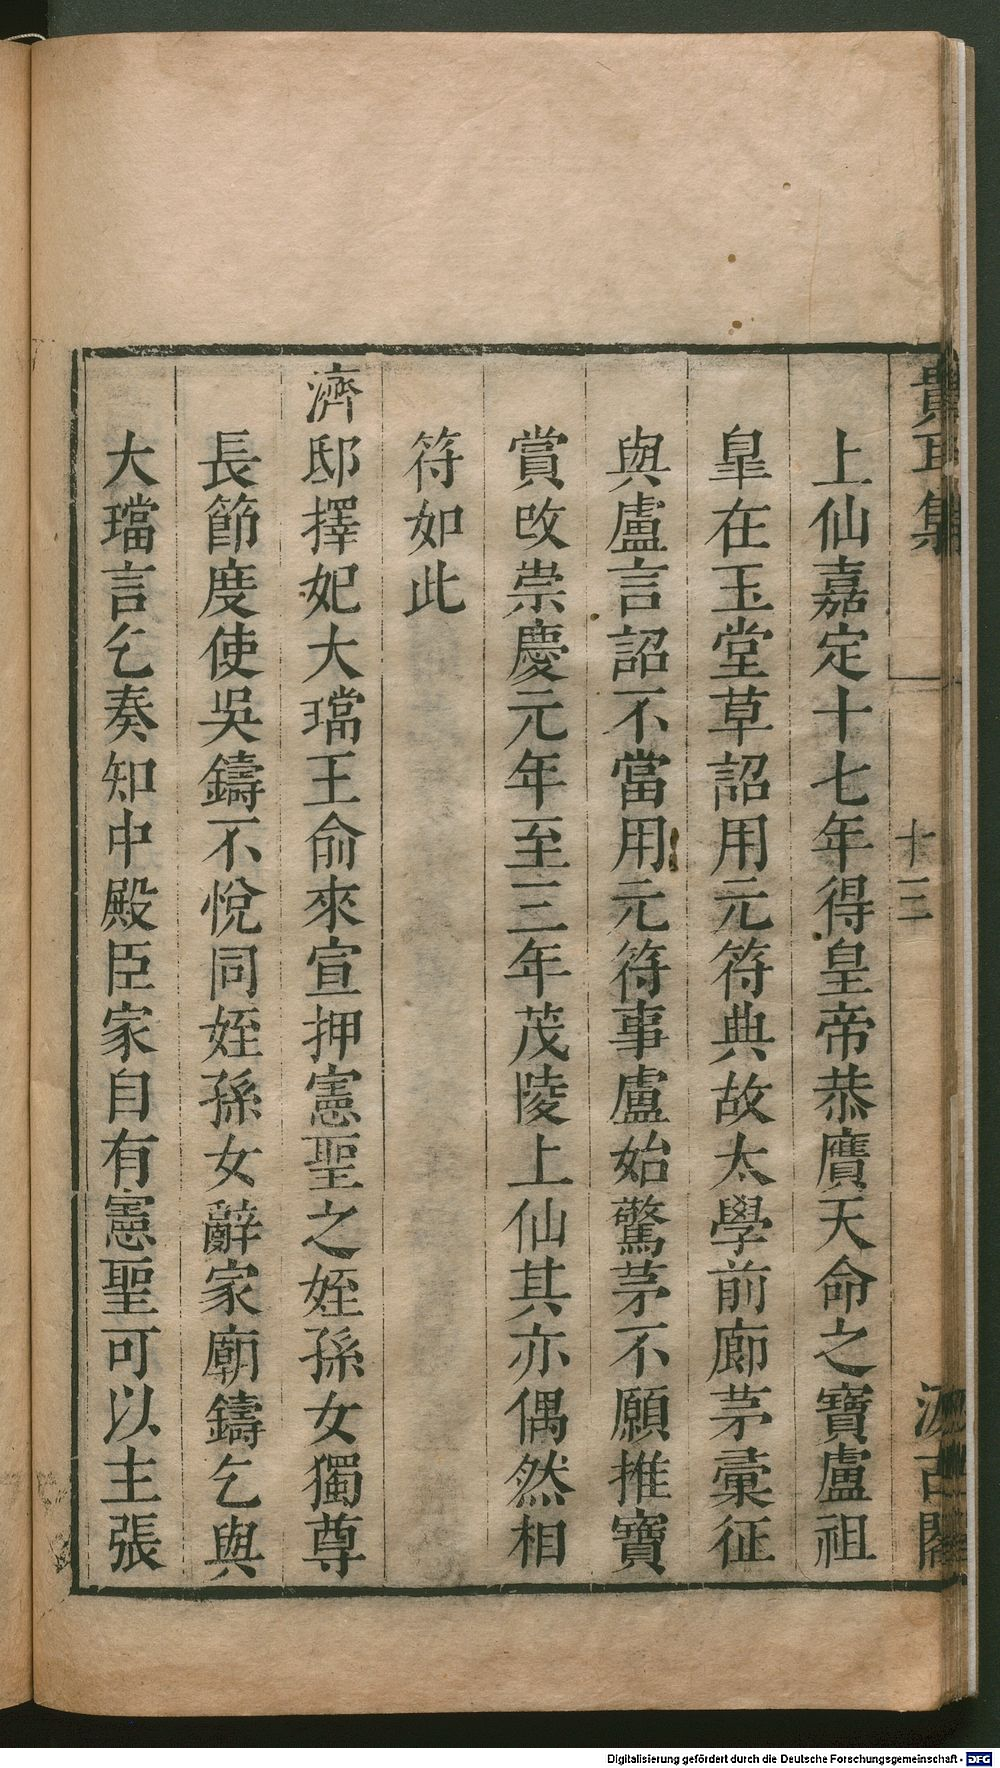 貴耳集
一
十三
汲古閣
上仙嘉定十七年得皇帝恭膺天命之寶盧祖
皐在玉堂草詔用元符典故太學前廊茅彚征
與盧言詔不當用元符事盧始驚茅不願推寶
賞改崇慶元年至三年茂陵上仙其亦偶然相
符如此
濟邸擇妃大璫王俞來宣押憲聖之姪孫女獨尊
長節度使吳鑄不悅同姪孫女辭家廟鑄乞與
大璫言乞奏知中殿臣家自有憲聖可以主張
Digitalisierung gefördert durch die Deutsche Forschungsgemeinschaft - DFG